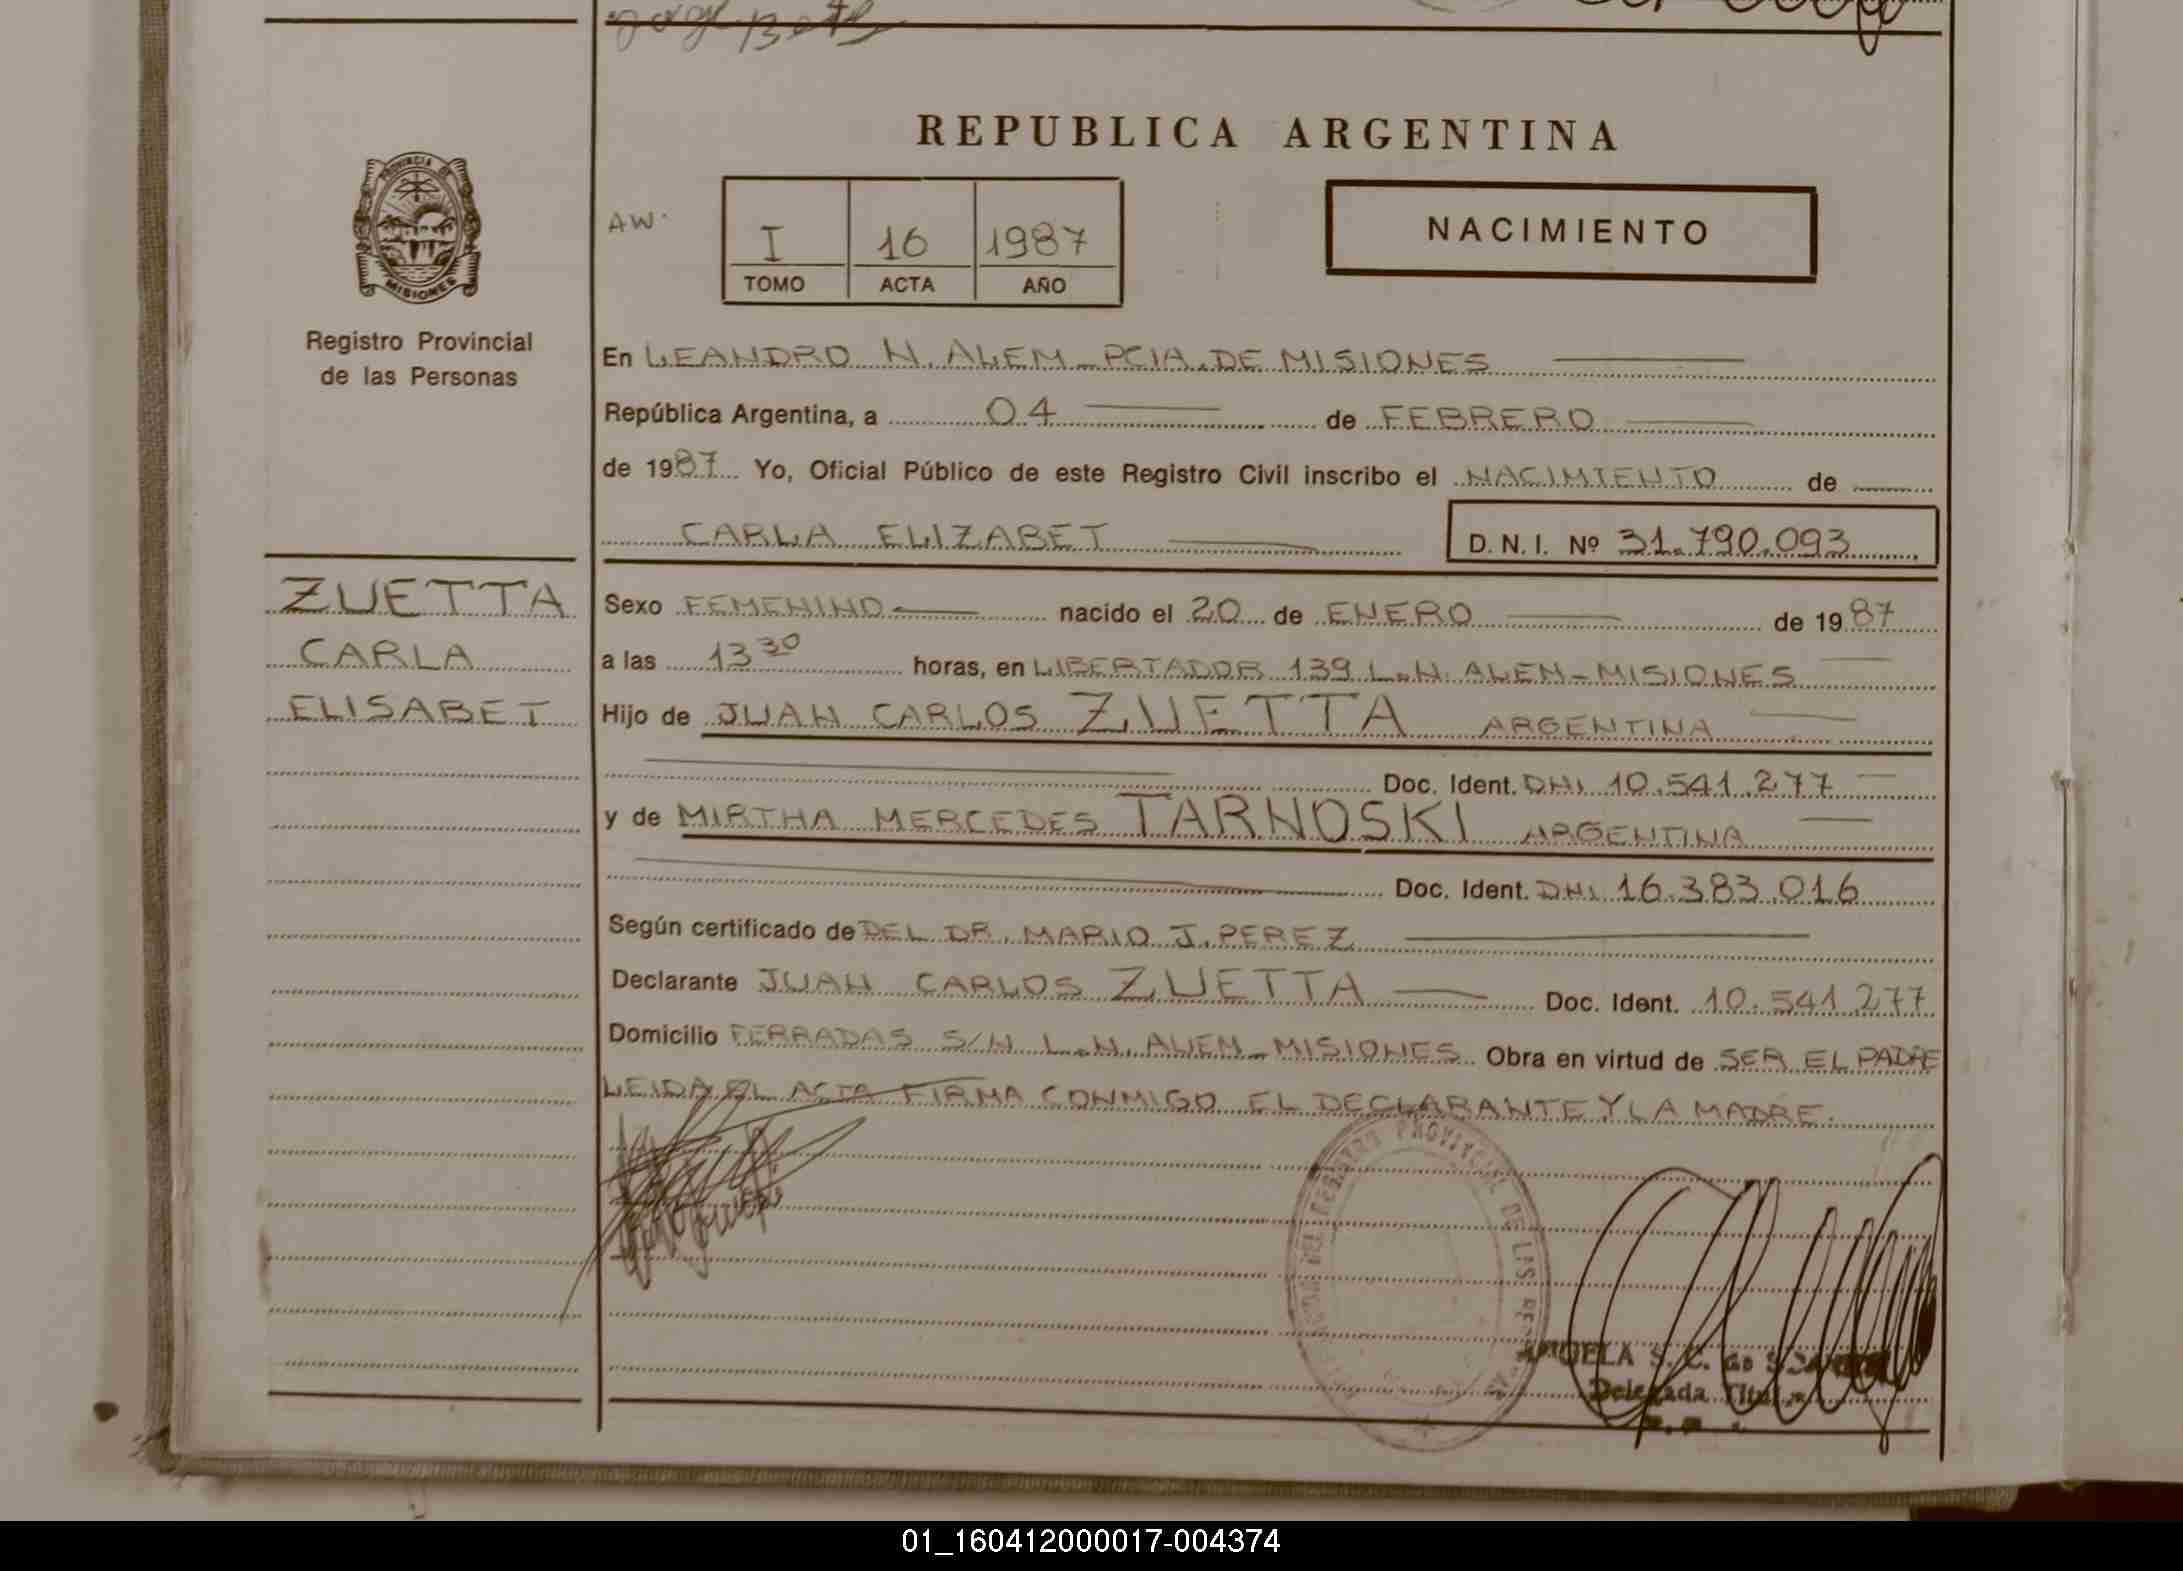 REPUBLICA ARGENTINA
PROVINCIA DE
MISIONES
Registro Provincial
de las Personas
AW.
I 16 1987
TOMO ACTA AÑO
NACIMIENTO
En LEANDRO N. ALEM - PCIA. DE MISIONES
República Argentina, a 04 de FEBRERO
de 1987 Yo, Oficial Público de este Registro Civil inscribo el NACIMIENTO de
CARLA ELIZABET D. N. I. Nº 31.790.093
ZUETTA
CARLA
ELISABET
Sexo FEMENINO nacido el 20 de ENERO de 1987
a las 13 30 horas, en LIBERTADOR 139 L.N. ALEM - MISIONES
Hijo de JUAN CARLOS ZUETTA ARGENTINA
Doc. Ident. DNI 10.541.277
y de MIRTHA MERCEDES TARNOSKI ARGENTINA
Doc. Ident. DNI 16.383.016
Según certificado de DEL DR. MARIO J. PEREZ
Declarante JUAN CARLOS ZUETTA Doc. Ident. 10.541.277
Domicilio FERRADAS S/N L.N. ALEM - MISIONES Obra en virtud de SER EL PADRE
LEIDA EL ACTA FIRMA CONMIGO EL DECLARANTE Y LA MADRE.
REGISTRO PROVINCIAL DE LAS
ANGELA S. C. de
Delegada Titular
01_160412000017-004374